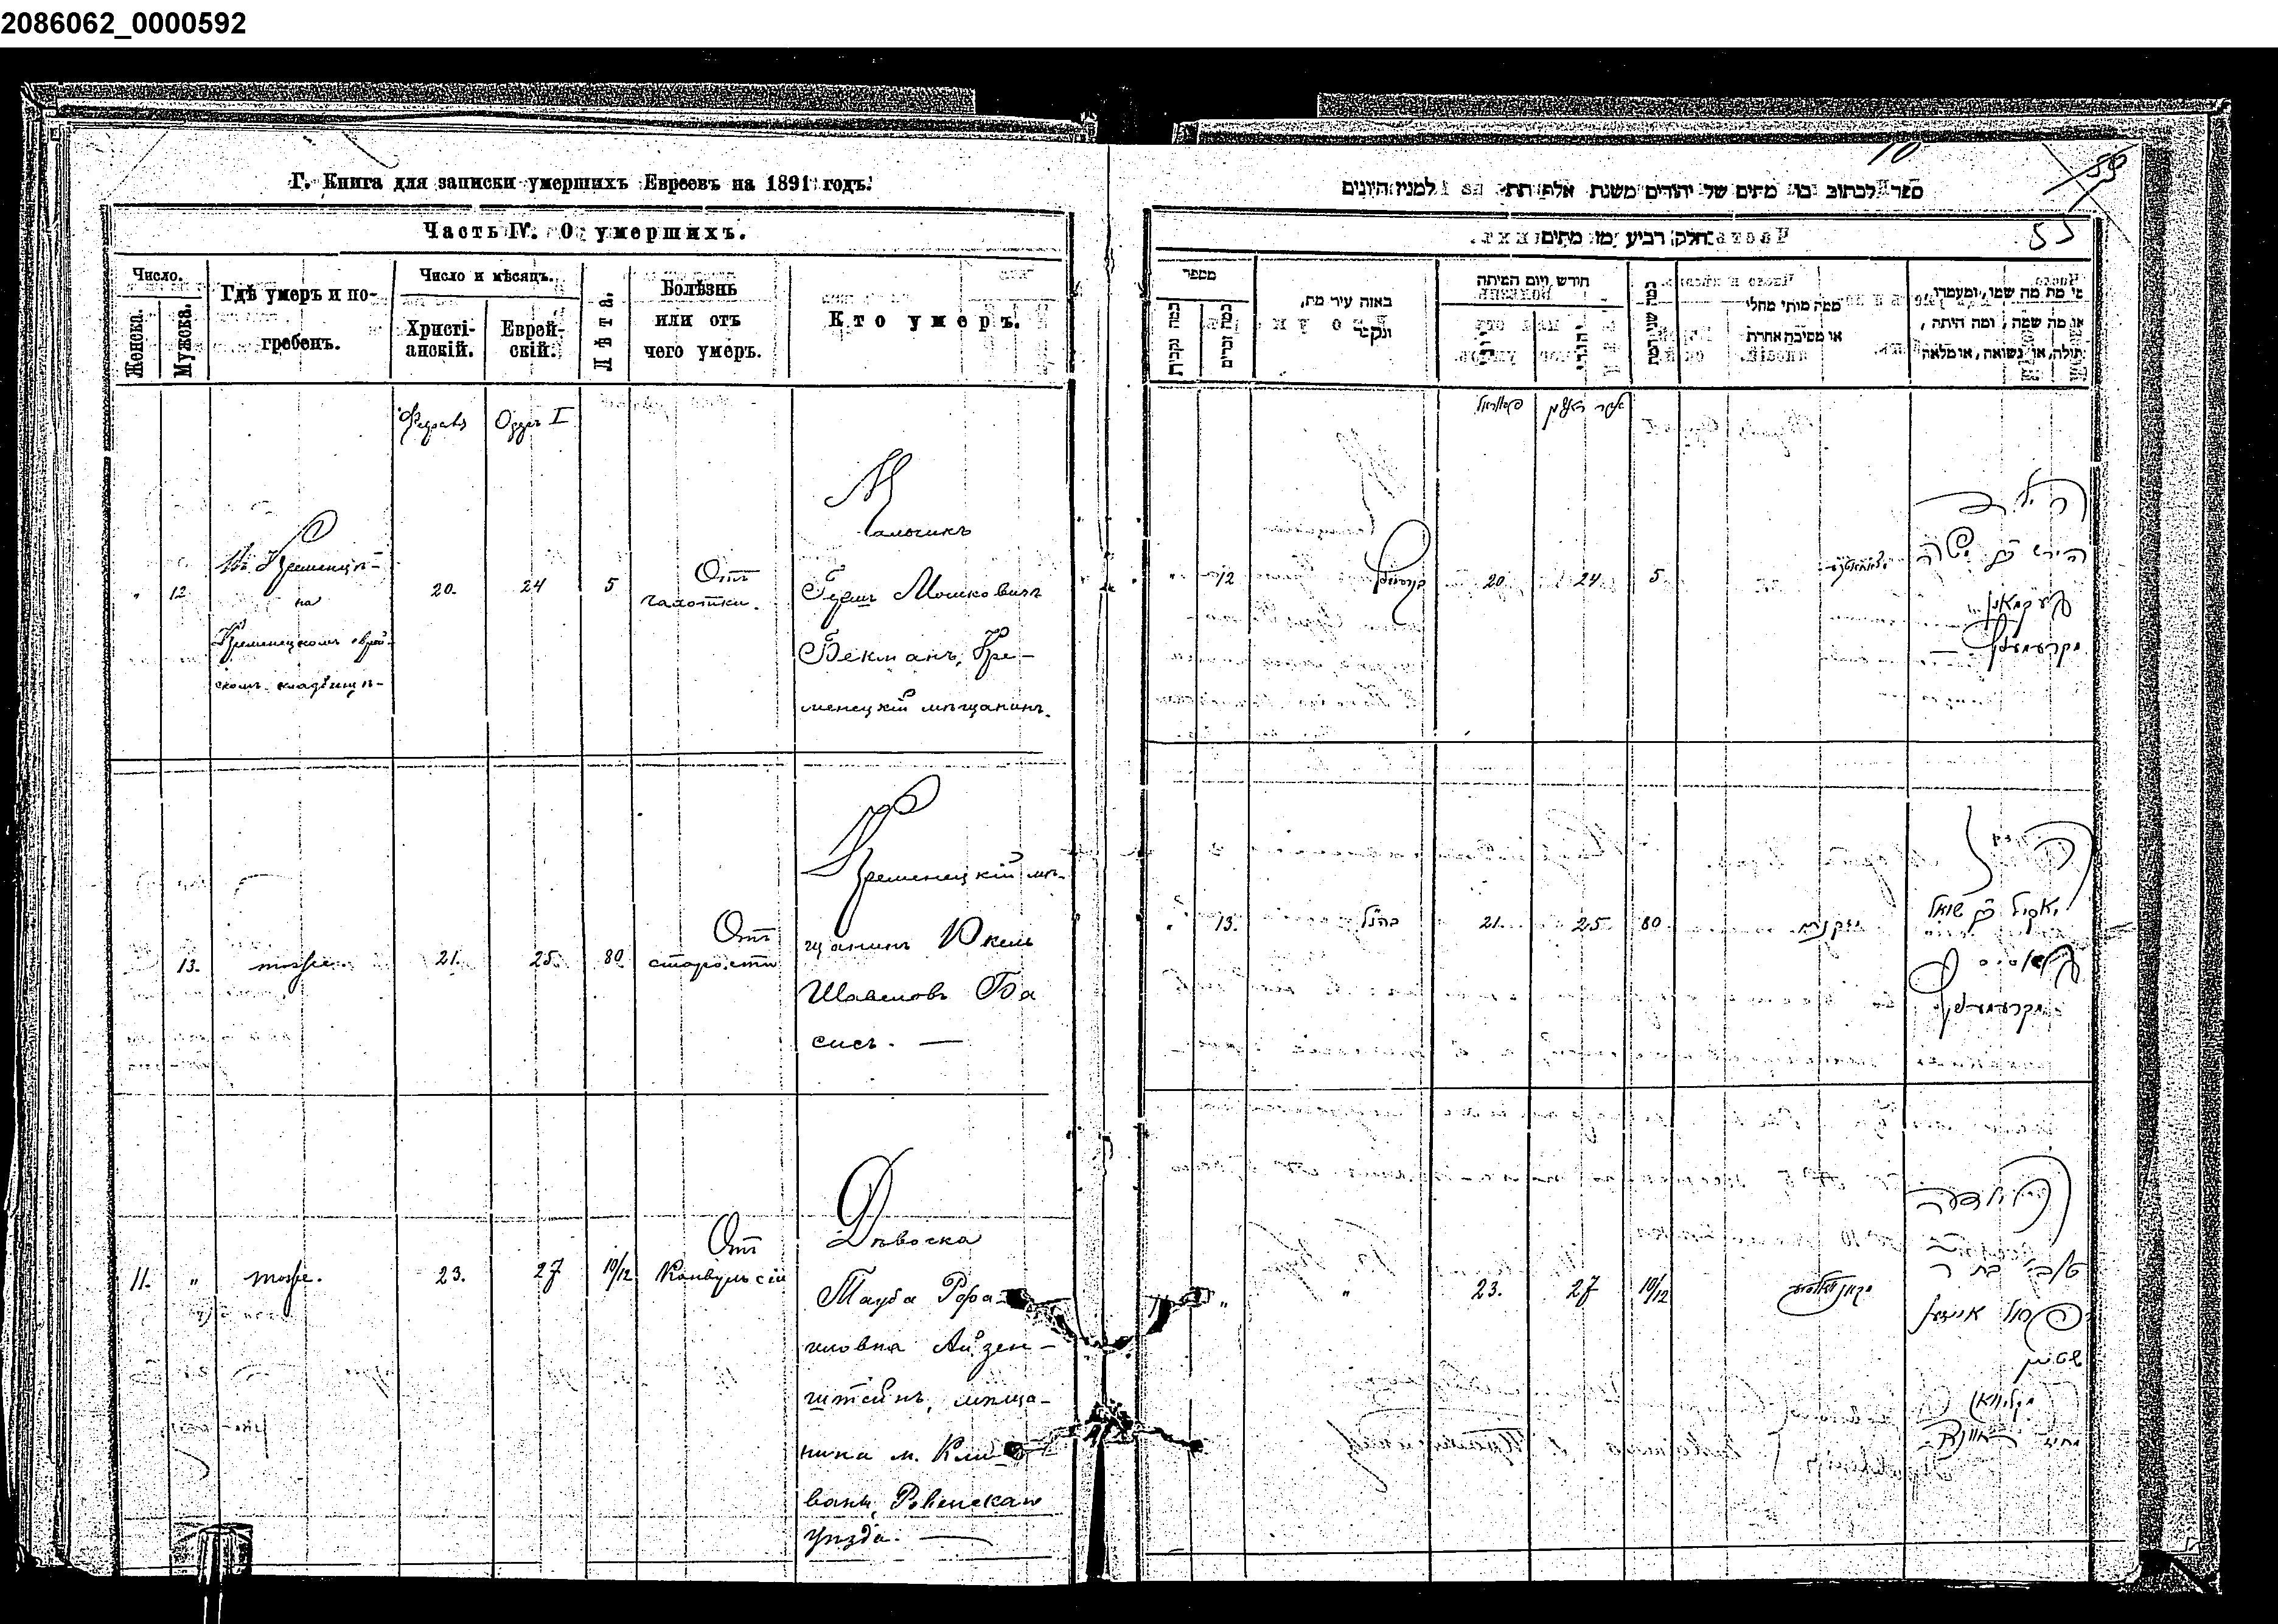 2086062_0000592
Г. Книга для записки умершихъ Евреевъ на 1891 годъ.
Часть IV. О умершихъ.
Число.
Женска.
Мужска.
Гдѣ умеръ и по-
гребенъ.
Число и мѣсяцъ.
Христі-
анскій.
Еврей-
скій.
Лѣта.
Болѣзнь
или отъ
чего умеръ.
Кто умеръ.
Адаръ I
12
Въ Кременцѣ
на
Кременецкомъ еврей-
скомъ кладбищѣ
20.
24
5
Отъ
чахотки.
Мальчикъ
Гершъ Мошковичъ
Бекманъ, Кре-
менецкій мѣщанинъ.
13.
тоже.
21.
25.
80
Отъ
старости
Кременецкій мѣ-
щанинъ Юкель
Шавеловъ Ба
сисъ. —
11.
"
тоже.
23.
27
10/12
Отъ
Конвульсій
Дѣвочка
Тауба Рафа-
иловна Айзен-
штейнъ, мѣща-
нина м. Кле-
вань, Ровенскаго
уѣзда. —
53
חלק רביעי מן מתים
מספר
כמה נקבות
כמה זכרים
באוזה עיר מת,
ונקבר
חודש ויום המיתה
כמה שני המת
ממה מותו מחלי
או מסיבה אחרת
מי מת מה שמו, ומעמדו,
או מה שמה, ומה היתה,
בתולה, או נשואה, או אלמנה
אדר ראשון
12
20
24
5
הילד
הירש בן משה
בעקמאן
מקרעמעניץ
13.
כנ"ל
21.
25.
80
מזקנה
יאקיל בן שואל
באסיס
מקרעמעניץ
"
"
23.
27
10/12
הילדה
טובי בת ר'
רפאל אייזען
שטיין
מקליוואן